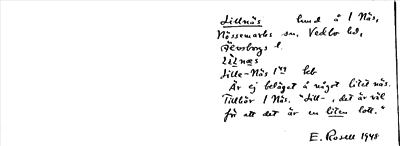 Lillnäs hmd å 1 Näs,
Nössemarks sn, Vedbo hd,
Älvsborgs l.
Lille-Näs 1/49 hb
Är ej beläget å något litet näs.
Tillhör 1 Näs. "Lill-, det är väl
för att det är en liten lott."
E. Rosell 1948